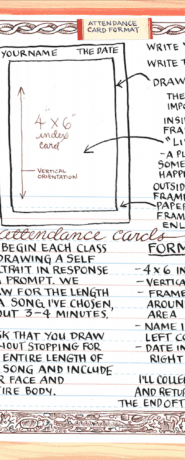 ATTENDANCE
CARD FORMAT
YOURNAME THE DATE
WRITE
WRITE
DRAW
4" x 6"
index
card
VERTICAL
ORIENTATION
THE
IMPO
INSI
FRA
LI
-A PL
SOME
HAPP
OUTSID
FRAMI
PAPE
FRAM
ENL
attendance cards
BEGIN EACH CLASS
DRAWING A SELF
TRAIT IN RESPONSE
PROMPT. WE
W FOR THE LENGTH
A SONG I'VE CHOSEN,
OUT 3-4 MINUTES.
SK THAT YOU DRAW
HOUT STOPPING FOR
ENTIRE LENGTH OF
SONG AND INCLUDE
R FACE AND
IRE BODY.
FORM
-4 x 6 IN
-VERTICA
-FRAME
AROUN
AREA
-NAME I
LEFT CO
-DATE IN
RIGHT
I'LL COLLE
AND RETU
THE END OF T